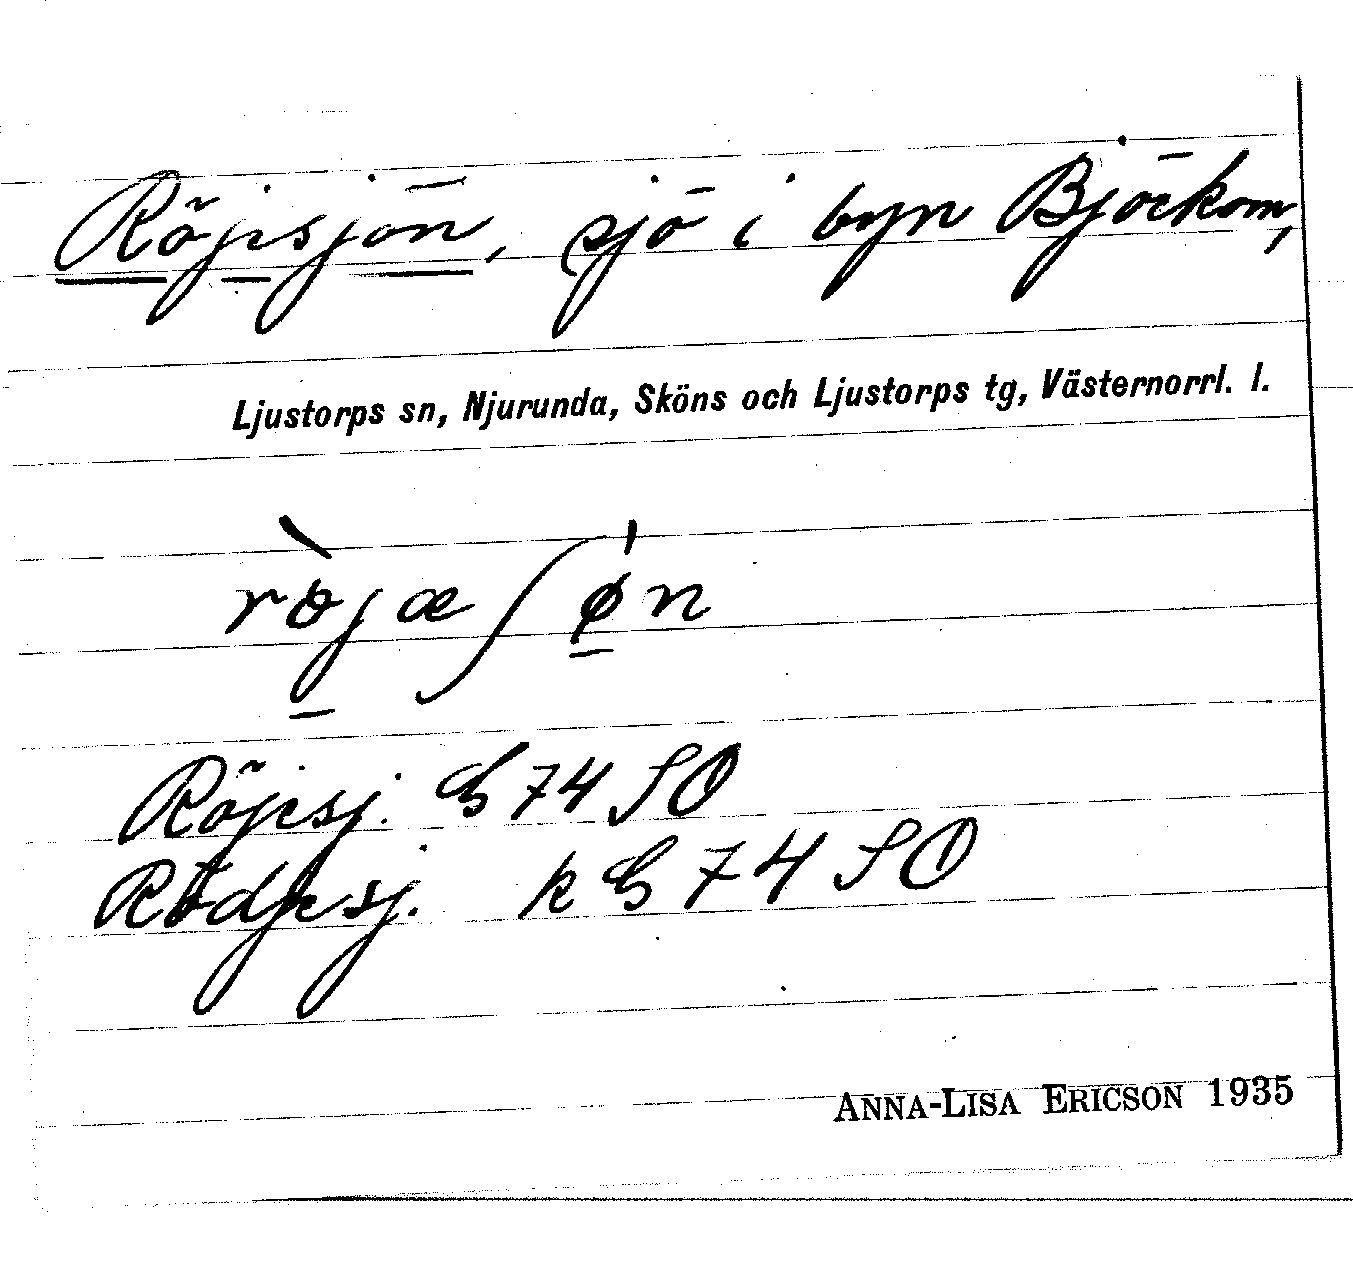 Röjesjön, sjö i byn Bjöckom,
Ljustorps sn, Njurunda, Sköns och Ljustorps tg, Västernorrl. l.
röjæʃøn
Röjesj. G 74 SO
Rödjesj. k G 74 SO
ANNA-LISA ERICSON 1935